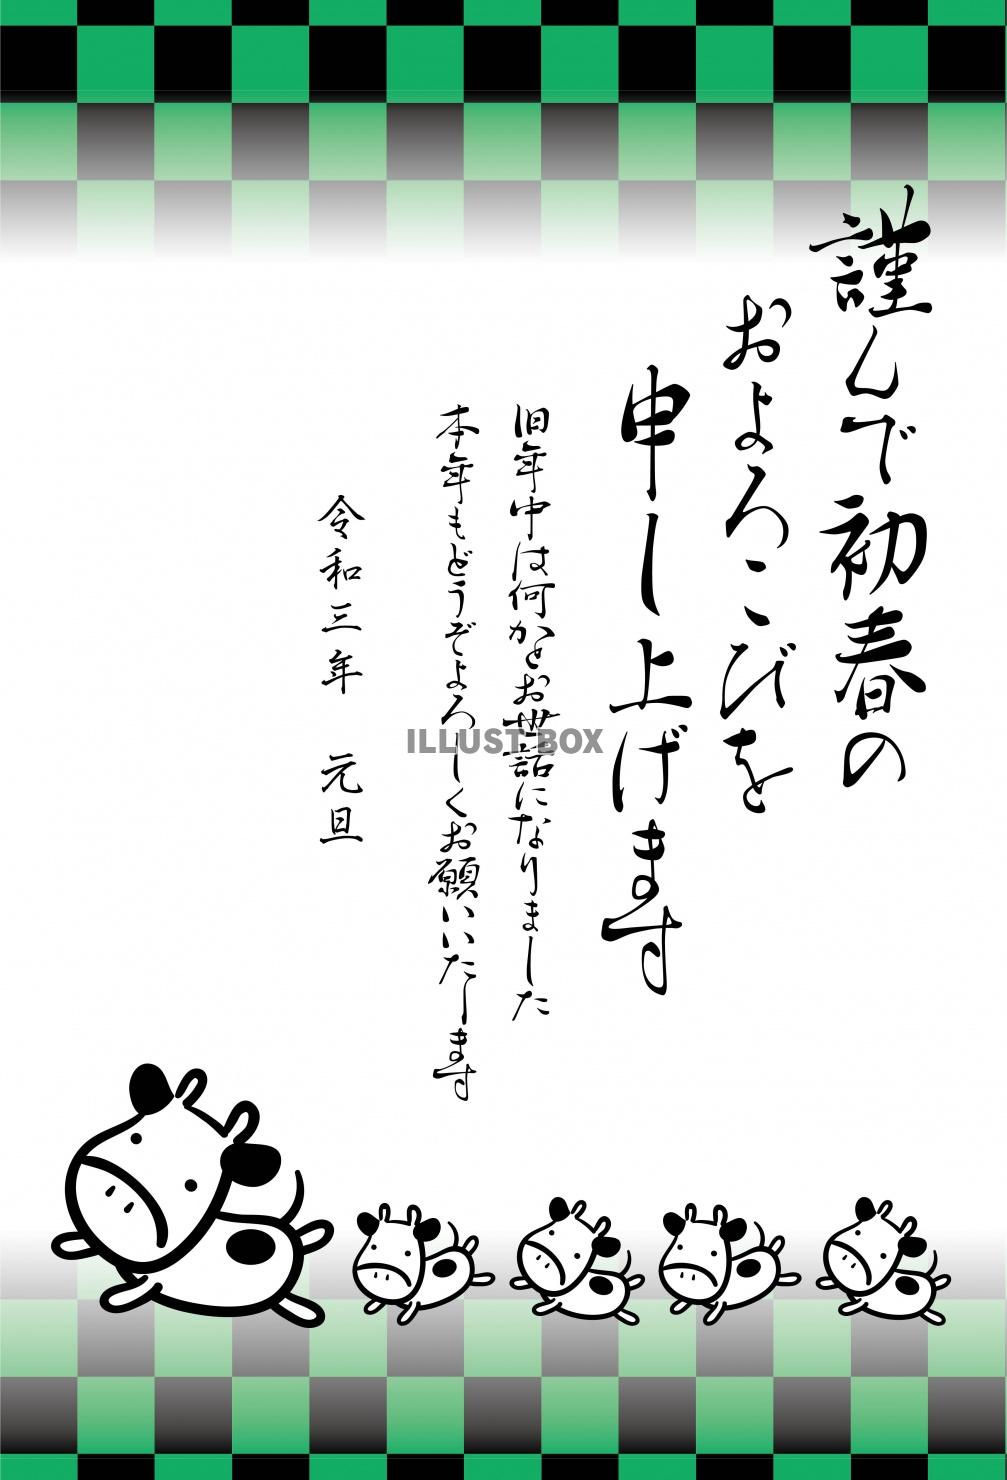 謹んで初春の
およろこびを
申し上げます
旧年中は何かとお世話になりました
本年もどうぞよろしくお願いいたします
令和三年 元旦
ILLUST BOX